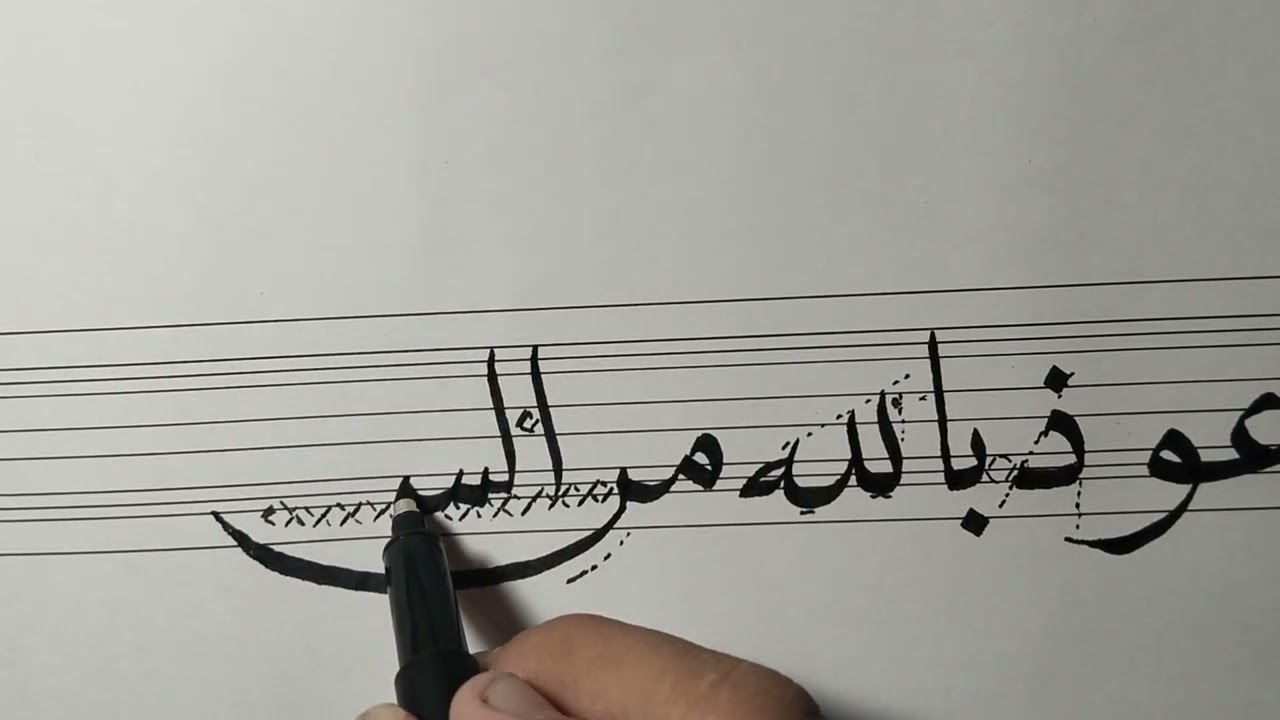 عوذ بالله من الس